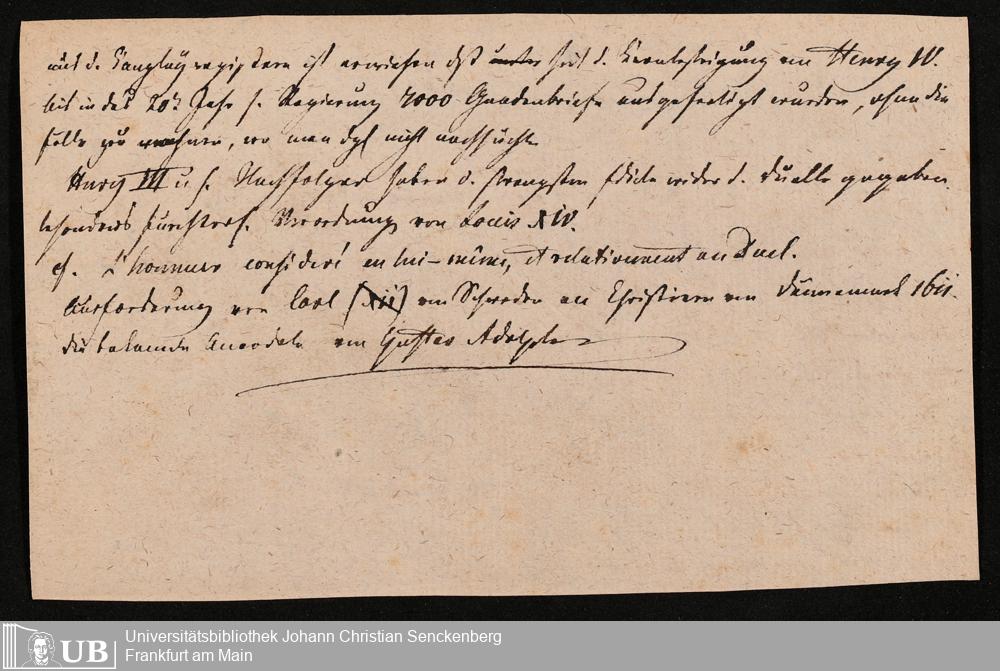 aus d. Canzley registern ist erwiesen dß unter seit d. Thronbesteigung von Henry IV.
bis in das 20te Jahr s. Regierung 7000 Gnadenbriefe ausgefertigt wurden, ohne die
Fälle zu rechnen, wo man dgl nicht nachsuchte
Henry III u s. Nachfolger haben d. strengsten Edicte wider d. Duelle gegeben.
besonders Verordnung von Louis XIV.
cf. L'honneur consideré en lui-même, et relativement au Duel.
Ausforderung von Carl (XII) von Schweden an Christian von Dännemark 1611.
die bekannte Anecdote von Gustav Adolph
Universitätsbibliothek Johann Christian Senckenberg
Frankfurt am Main
UB